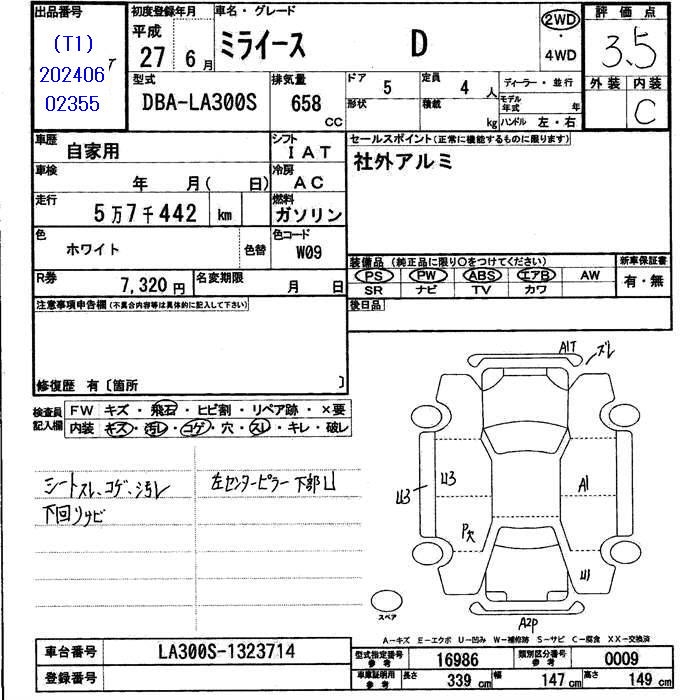 出品番号 初度登録年月 車名・グレード 評価点
(T1) 平成 ミライース D 2WD 3.5
202406 T 27 6月 ・4WD
02355 型式 排気量 ドア 5 定員 4人 ディーラー・並行 外装 内装
DBA-LA300S 658 CC 形状 積載 kg モデル年式 年 C
ハンドル 左・右
車歴 自家用 シフト IAT セールスポイント(正常に機能するものに限ります)
車検 年 月( 日) 冷房 AC 社外アルミ
走行 5万7千442 km 燃料 ガソリン
色 ホワイト 色替 色コード W09
装備品 (純正品に限り○をつけてください) 新車保証書
R券 7,320円 名変期限 月 日 PS PW ABS エアB AW 有・無
SR ナビ TV カワ
注意事項申告欄(不具合内容等は具体的に記入して下さい) 後日品
修復歴 有〔箇所 〕
検査員記入欄 FW キズ・飛石・ヒビ割・リペア跡・×要
内装 キズ・汚レ・コゲ・穴・スレ・キレ・破レ
シートスレ、コゲ、汚レ 左センターピラー下部U
下回リサビ
A1T ズレ
U3 U3 A1
P欠
U1
スペア A2P
A−キズ E−エクボ U−凹み W−補修跡 S−サビ C−腐食 XX−交換済
車台番号 LA300S-1323714 型式指定番号 参考 16986 類別区分番号 参考 0009
登録番号 車庫証明用 参考 長さ 339 cm 幅 147 cm 高さ 149 cm